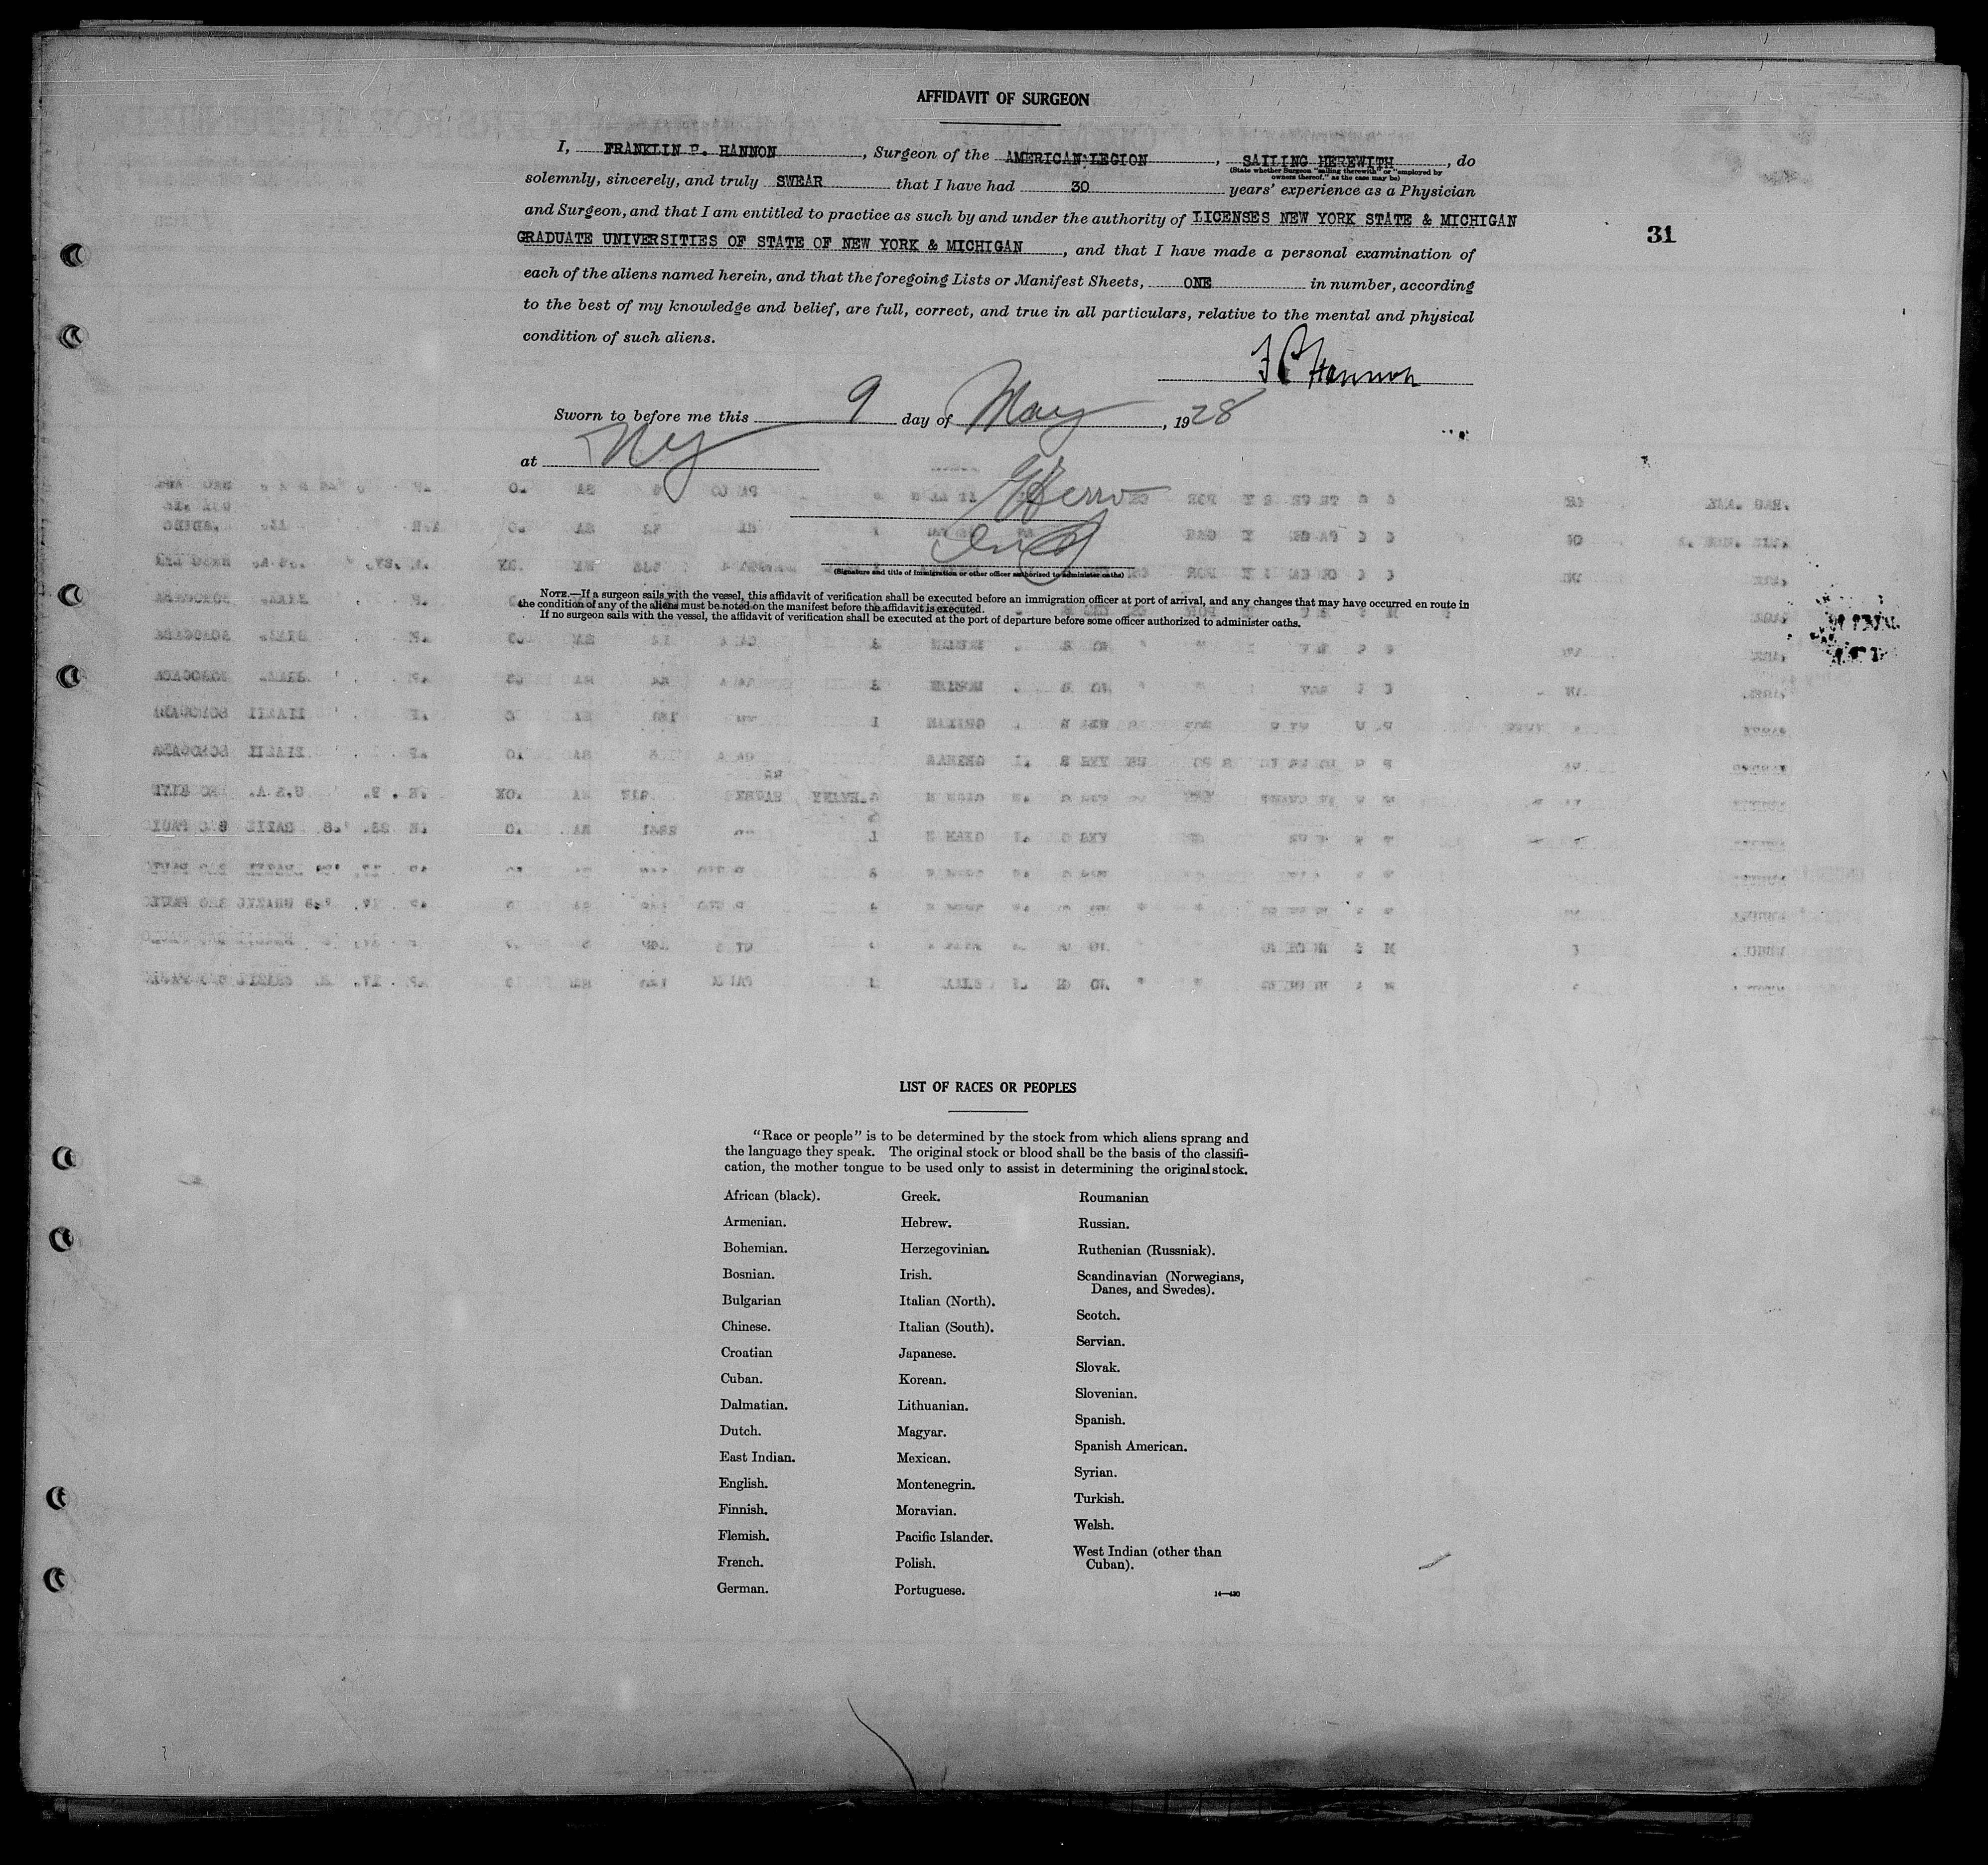 AFFIDAVIT OF SURGEON
I, FRANKLIN P. HANNON, Surgeon of the AMERICAN LEGION, SAILING HEREWITH, do
(State whether Surgeon "sailing therewith" or "employed by
owners thereof," as the case may be)
solemnly, sincerely, and truly SWEAR that I have had 30 years' experience as a Physician
and Surgeon, and that I am entitled to practice as such by and under the authority of LICENSES NEW YORK STATE & MICHIGAN
GRADUATE UNIVERSITIES OF STATE OF NEW YORK & MICHIGAN, and that I have made a personal examination of
31
each of the aliens named herein, and that the foregoing Lists or Manifest Sheets, ONE in number, according
to the best of my knowledge and belief, are full, correct, and true in all particulars, relative to the mental and physical
condition of such aliens.
F P Hannon
Sworn to before me this 9 day of May, 1928
at NY
(Signature and title of immigration or other officer authorized to administer oaths)
NOTE.—If a surgeon sails with the vessel, this affidavit of verification shall be executed before an immigration officer at port of arrival, and any changes that may have occurred en route in
the condition of any of the aliens must be noted on the manifest before the affidavit is executed.
If no surgeon sails with the vessel, the affidavit of verification shall be executed at the port of departure before some officer authorized to administer oaths.
LIST OF RACES OR PEOPLES
"Race or people" is to be determined by the stock from which aliens sprang and
the language they speak. The original stock or blood shall be the basis of the classifi-
cation, the mother tongue to be used only to assist in determining the original stock.
African (black).
Armenian.
Bohemian.
Bosnian.
Bulgarian
Chinese.
Croatian
Cuban.
Dalmatian.
Dutch.
East Indian.
English.
Finnish.
Flemish.
French.
German.
Greek.
Hebrew.
Herzegovinian.
Irish.
Italian (North).
Italian (South).
Japanese.
Korean.
Lithuanian.
Magyar.
Mexican.
Montenegrin.
Moravian.
Pacific Islander.
Polish.
Portuguese.
Roumanian
Russian.
Ruthenian (Russniak).
Scandinavian (Norwegians,
Danes, and Swedes).
Scotch.
Servian.
Slovak.
Slovenian.
Spanish.
Spanish American.
Syrian.
Turkish.
Welsh.
West Indian (other than
Cuban).
14—430